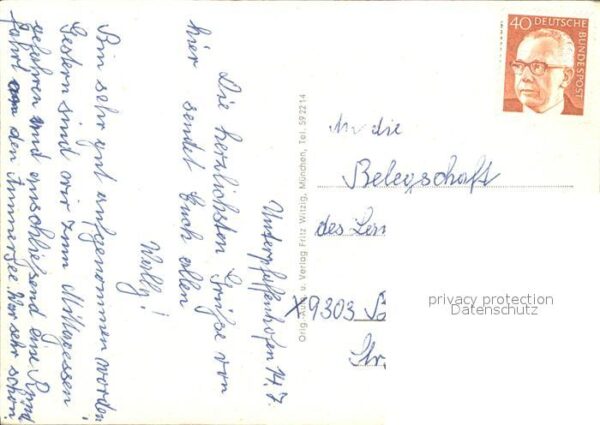 Unterpfaffenhofen 14.7.
Die herzlichsten Grüße von
hier sendet Euch allen
Wally!
Bin sehr gut aufgenommen worden.
Gestern sind wir zum Mittagessen
gefahren und anschließend eine Rund
fahrt um den Ammersee. War sehr schön
Orig.-Aufn. u. Verlag Fritz Witzig, München, Tel. 592214
40 DEUTSCHE
BUNDESPOST
An die
Belegschaft
des
X 9303
Str.
privacy protection
Datenschutz